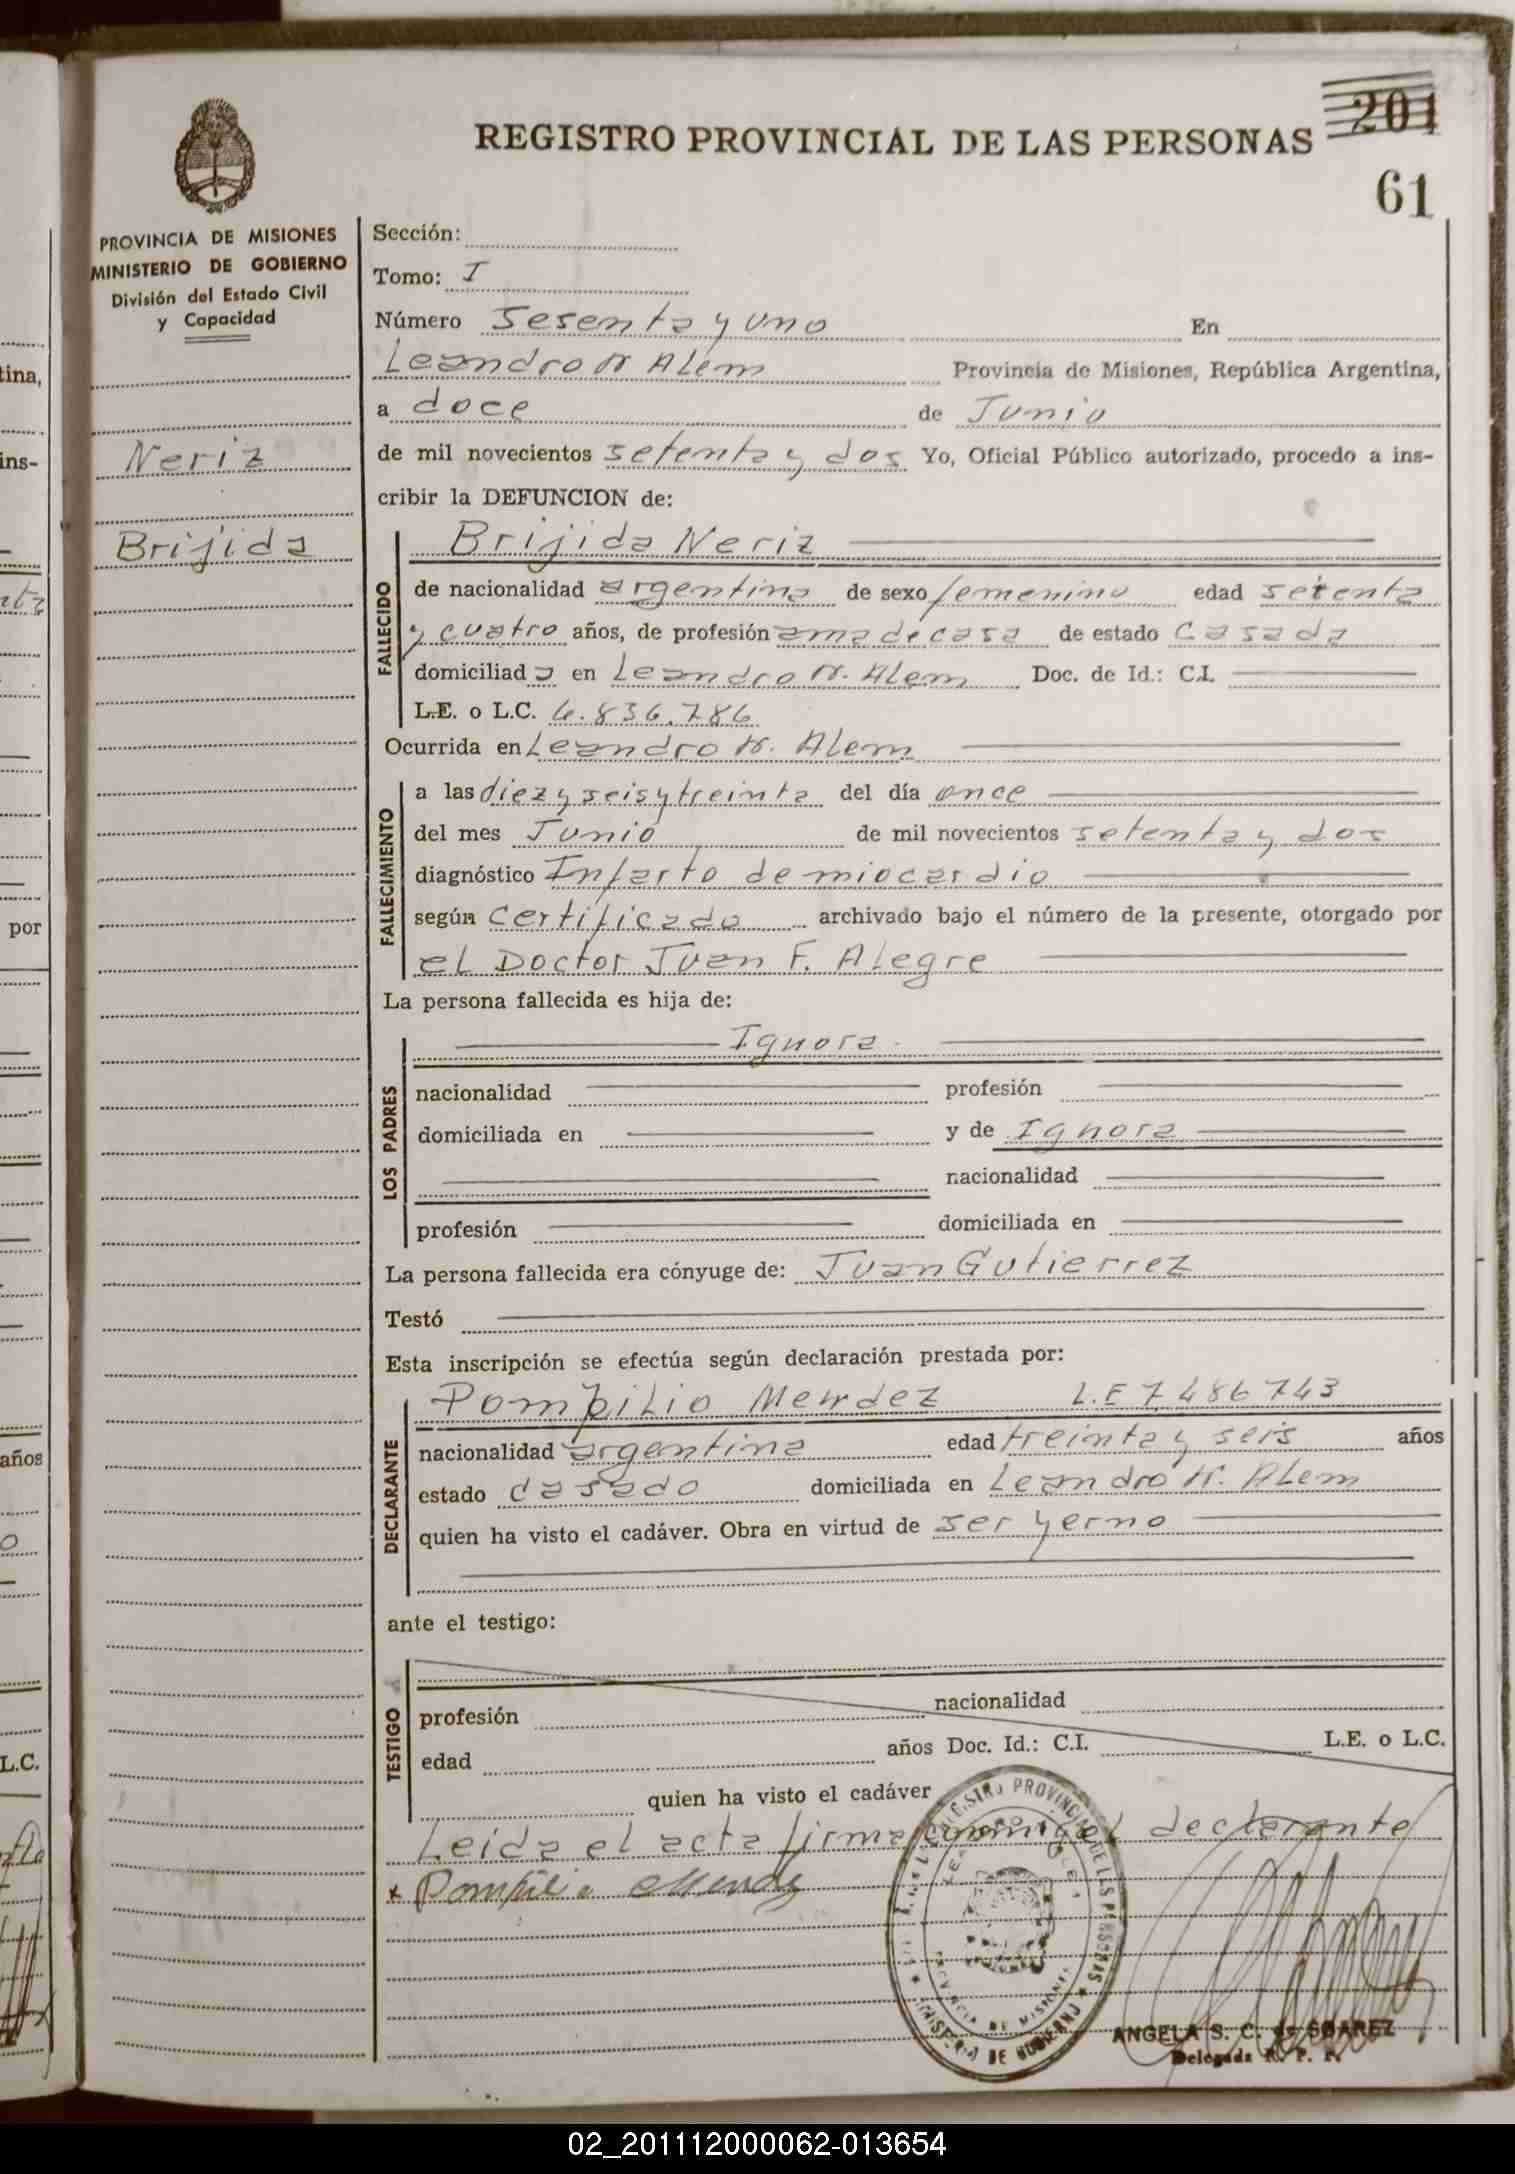 REGISTRO PROVINCIAL DE LAS PERSONAS
201
61
PROVINCIA DE MISIONES
MINISTERIO DE GOBIERNO
División del Estado Civil
y Capacidad
Neriz
Brijida
Sección:
Tomo: I
Número Sesenta y uno En
Leandro N Alem Provincia de Misiones, República Argentina,
a doce de Junio
de mil novecientos setenta y dos Yo, Oficial Público autorizado, procedo a ins-
cribir la DEFUNCION de:
FALLECIDO
Brijida Neriz
de nacionalidad argentina de sexo femenino edad setenta
y cuatro años, de profesión ama de casa de estado Casada
domiciliada en Leandro N. Alem Doc. de Id.: C.I.
L.E. o L.C. 6.836.786
Ocurrida en Leandro N. Alem
FALLECIMIENTO
a las diez y seis y treinta del día once
del mes Junio de mil novecientos setenta y dos
diagnóstico Infarto de miocardio
según Certificado archivado bajo el número de la presente, otorgado por
el Doctor Juan F. Alegre
La persona fallecida es hija de:
LOS PADRES
Ignora
nacionalidad profesión
domiciliada en y de Ignora
nacionalidad
profesión domiciliada en
La persona fallecida era cónyuge de: Juan Gutierrez
Testó
Esta inscripción se efectúa según declaración prestada por:
DECLARANTE
Pompilio Mendez L.E 7.486743
nacionalidad argentina edad treinta y seis años
estado casado domiciliada en Leandro N. Alem
quien ha visto el cadáver. Obra en virtud de ser yerno
ante el testigo:
TESTIGO
profesión nacionalidad
edad años Doc. Id.: C.I. L.E. o L.C.
quien ha visto el cadáver
Leida el acta firma conmigo el declarante
x Pompilio Mendez
REGISTRO PROVINCIAL DE LAS PERSONAS
PROVINCIA DE MISIONES
MINISTERIO DE GOBIERNO
ANGELA S. C. de SUAREZ
Delegada R. P. P.
tina,
ins-
por
años
L.C.
02_201112000062-013654